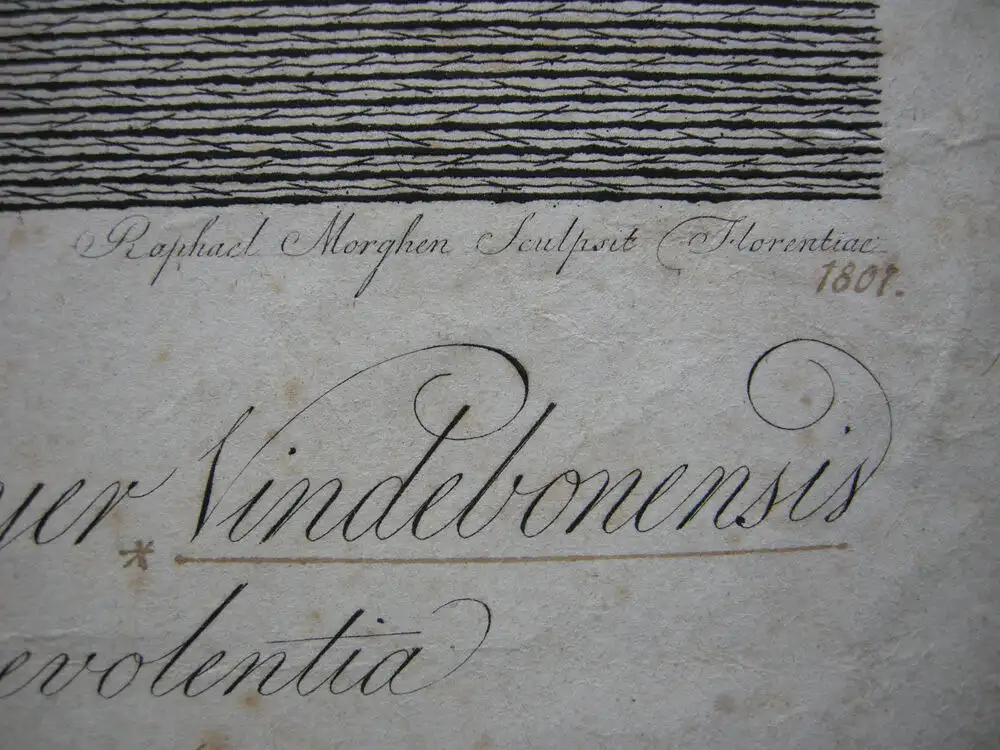 Raphael Morghen Sculpsit Florentiae
1801.
yer Vindebonensis
*
evolentia